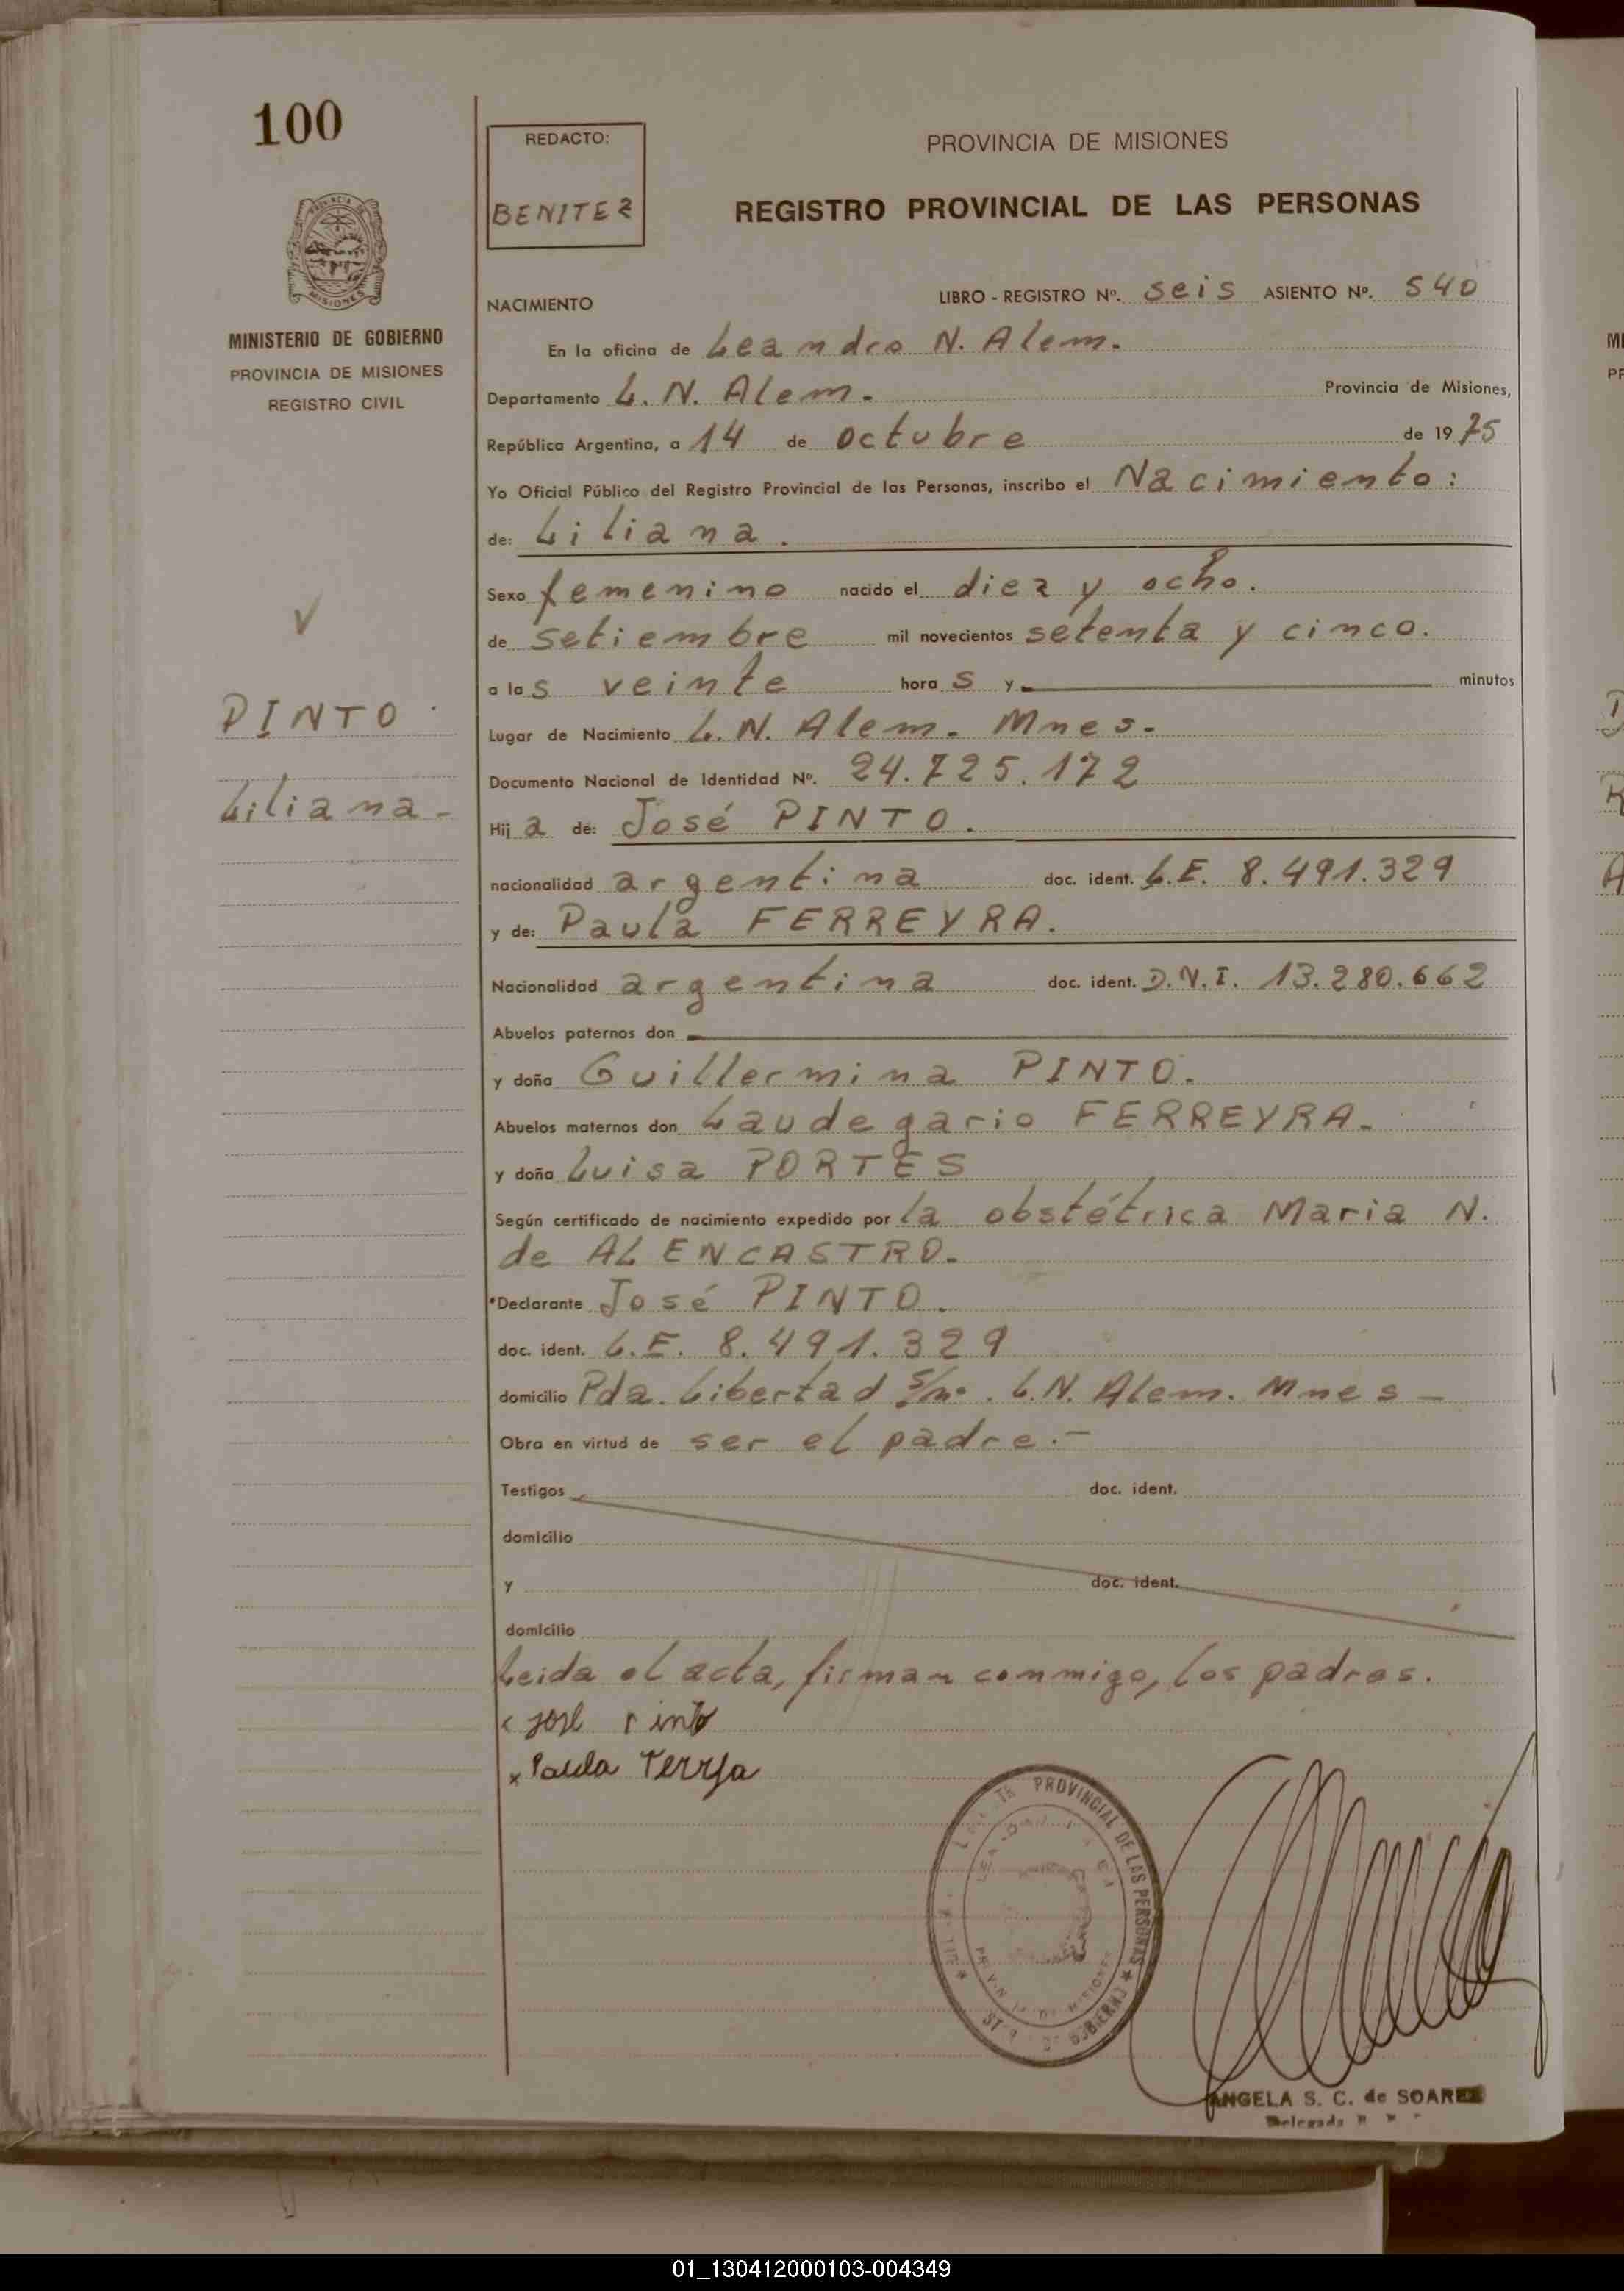 100
REDACTO:
BENITEZ
PROVINCIA DE MISIONES
REGISTRO PROVINCIAL DE LAS PERSONAS
MISIONES
MINISTERIO DE GOBIERNO
PROVINCIA DE MISIONES
REGISTRO CIVIL
NACIMIENTO LIBRO - REGISTRO Nº. seis ASIENTO Nº. 540
En la oficina de Leandro N. Alem.
Departamento L. N. Alem. Provincia de Misiones,
República Argentina, a 14 de octubre de 1975
Yo Oficial Público del Registro Provincial de las Personas, inscribo el Nacimiento:
de: Liliana.
Sexo femenino nacido el diez y ocho.
de setiembre mil novecientos setenta y cinco.
a las veinte horas y minutos
PINTO
Liliana-
Lugar de Nacimiento L. N. Alem. Mnes-
Documento Nacional de Identidad Nº. 24.725.172
Hija de: José PINTO.
nacionalidad argentina doc. ident. L.E. 8.491.329
y de: Paula FERREYRA.
Nacionalidad argentina doc. ident. D.N.I. 13.280.662
Abuelos paternos don
y doña Guillermina PINTO.
Abuelos maternos don Laudegario FERREYRA.
y doña Luisa PORTES
Según certificado de nacimiento expedido por la obstétrica Maria N.
de ALENCASTRO.
*Declarante José PINTO.
doc. ident. L.E. 8.491.329
domicilio Pda. Libertad s/nº. L.N. Alem. Mnes-
Obra en virtud de ser el padre.-
Testigos doc. ident.
domicilio
y doc. ident.
domicilio
Leida el acta, firman conmigo, los padres.
x Paula
PROVINCIAL DE LAS PERSONAS
ANGELA S. C. de SOAREZ
Delegada
01_130412000103-004349